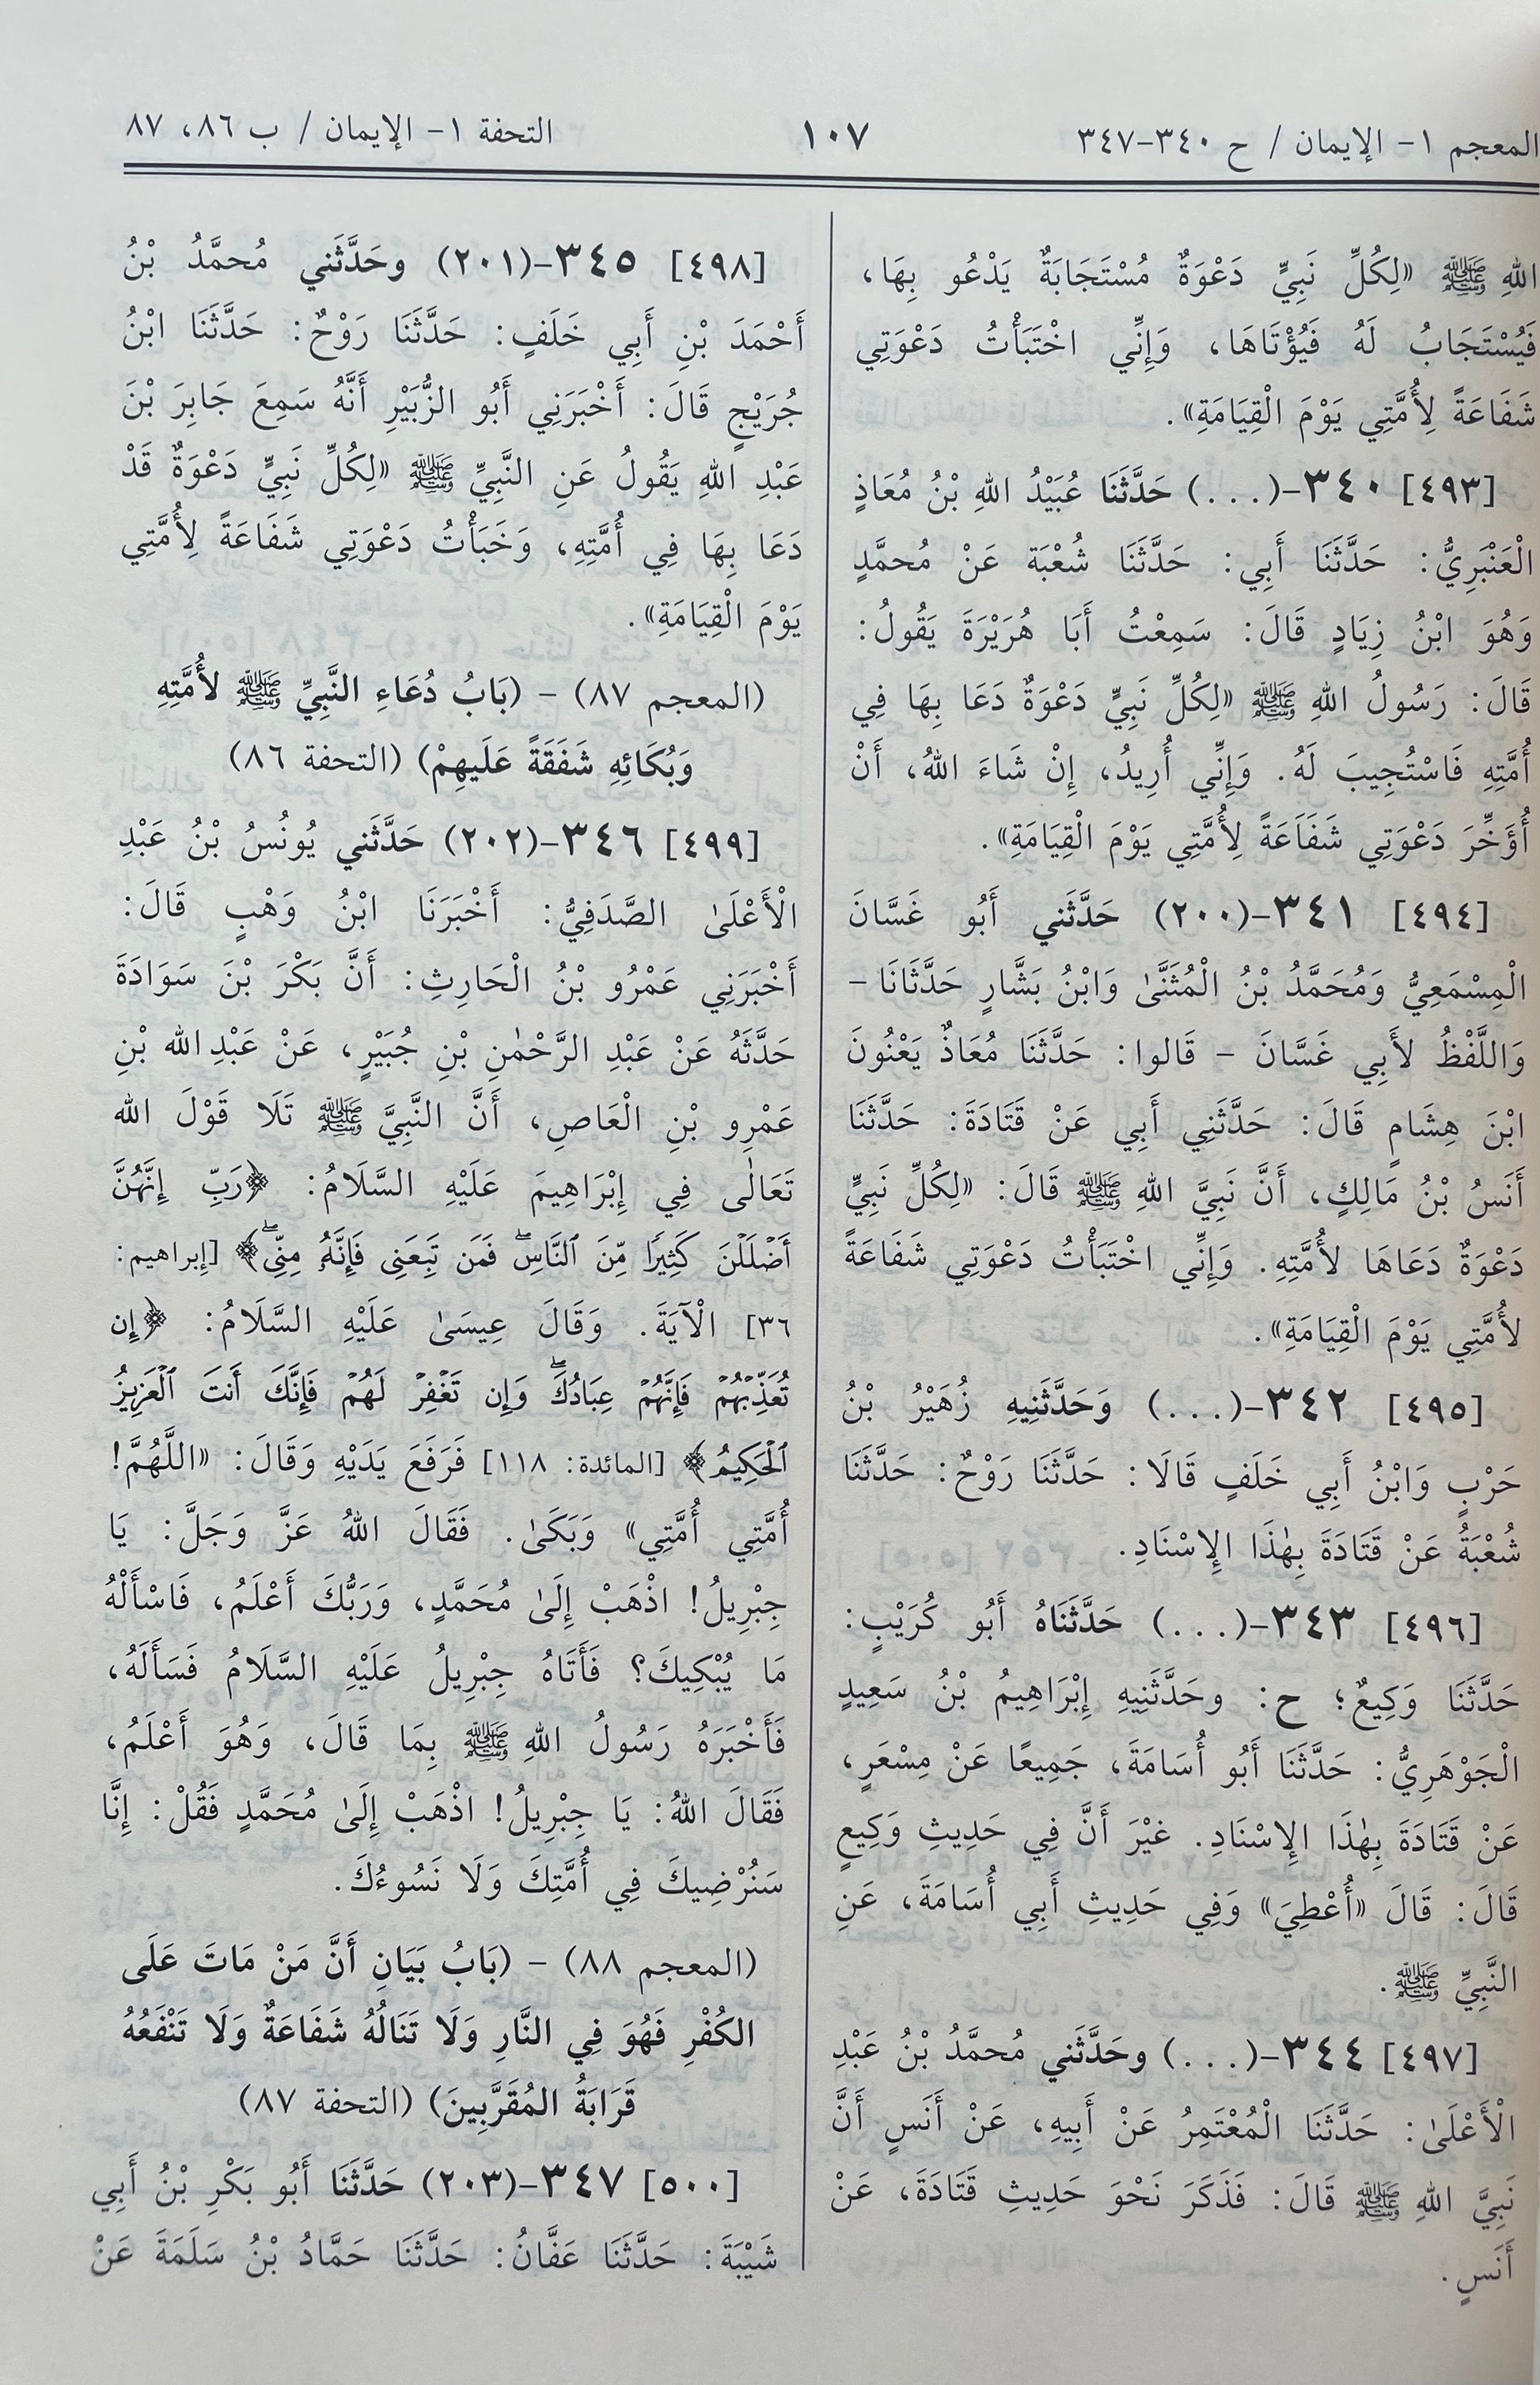 المعجم ١- الإيمان / ح ٣٤٠-٣٤٧
١٠٧
التحفة ١- الإيمان / ب ٨٦، ٨٧
اللهِ ﷺ «لِكُلِّ نَبِيٍّ دَعْوَةٌ مُسْتَجَابَةٌ يَدْعُو بِهَا،
فَيُسْتَجَابُ لَهُ فَيُؤْتَاهَا، وَإِنِّي اخْتَبَأْتُ دَعْوَتِي
شَفَاعَةً لِأُمَّتِي يَوْمَ الْقِيَامَةِ».
[٤٩٣] ٣٤٠-(...) حَدَّثَنَا عُبَيْدُ اللهِ بْنُ مُعَاذٍ
الْعَنْبَرِيُّ: حَدَّثَنَا أَبِي: حَدَّثَنَا شُعْبَة عَنْ مُحمَّدٍ
وَهُوَ ابْنُ زِيَادٍ قَالَ: سَمِعْتُ أَبَا هُرَيْرَةَ يَقُولُ:
قَالَ: رَسُولُ اللهِ ﷺ «لِكُلِّ نَبِيٍّ دَعْوَةٌ دَعَا بِهَا فِي
أُمَّتِهِ فَاسْتُجِيبَ لَهُ. وَإِنِّي أُرِيدُ، إِنْ شَاءَ اللهُ، أَنْ
أُؤَخِّرَ دَعْوَتِي شَفَاعَةً لِأُمَّتِي يَوْمَ الْقِيَامَةِ».
[٤٩٤] ٣٤١-(٢٠٠) حَدَّثَني أَبُو غَسَّانَ
الْمِسْمَعِيُّ وَمُحَمَّدُ بْنُ الْمُثَنَّىٰ وَابْنُ بَشَّارٍ حَدَّثَانَا -
وَاللَّفْظُ لأَبِي غَسَّانَ - قَالوا: حَدَّثَنَا مُعَاذٌ يَعْنُونَ
ابْنَ هِشَامٍ قَالَ: حَدَّثَنِي أَبِي عَنْ قَتَادَةَ: حَدَّثَنَا
أَنَسُ بْنُ مَالِكٍ، أَنَّ نَبِيَّ اللهِ ﷺ قَالَ: «لِكُلِّ نَبِيٍّ
دَعْوَةٌ دَعَاهَا لأُمَّتِهِ. وَإِنِّي اخْتَبَأْتُ دَعْوَتِي شَفَاعَةً
لأُمَّتِي يَوْمَ الْقِيَامَةِ».
[٤٩٥] ٣٤٢-(...) وَحَدَّثَنِيهِ زُهَيْرُ بْنُ
حَرْبٍ وَابْنُ أَبِي خَلَفٍ قَالَا: حَدَّثَنَا رَوْحٌ: حَدَّثَنَا
شُعْبَةُ عَنْ قَتَادَةَ بِهٰذَا الإِسْنَادِ.
[٤٩٦] ٣٤٣-(...) حَدَّثَنَاهُ أَبُو كُرَيْبٍ:
حَدَّثَنَا وَكِيعٌ؛ ح: وحَدَّثَنِيهِ إِبْرَاهِيمُ بْنُ سَعِيدٍ
الْجَوْهَرِيُّ: حَدَّثَنَا أَبُو أُسَامَةَ، جَمِيعًا عَنْ مِسْعَرٍ،
عَنْ قَتَادَةَ بِهٰذَا الإِسْنَادِ. غيْرَ أَنَّ فِي حَدِيثِ وَكِيعٍ
قَالَ: قَالَ «أُعْطِيَ» وَفِي حَدِيثِ أَبِي أُسَامَةَ، عَنِ
النَّبِيِّ ﷺ.
[٤٩٧] ٣٤٤-(...) وحَدَّثَني مُحمَّدُ بْنُ عَبْدِ
الْأَعْلَىٰ: حَدَّثَنَا الْمُعْتَمِرُ عَنْ أَبِيهِ، عَنْ أَنَسٍ أَنَّ
نَبِيَّ اللهِ ﷺ قَالَ: فَذَكَرَ نَحْوَ حَدِيثِ قَتَادَةَ، عَنْ
أَنَسٍ.
[٤٩٨] ٣٤٥-(٢٠١) وحَدَّثَني مُحمَّدُ بْنُ
أَحْمَدَ بْنِ أَبِي خَلَفٍ: حَدَّثَنَا رَوْحٌ: حَدَّثَنَا ابْنُ
جُرَيْجٍ قَالَ: أَخْبَرَنِي أَبُو الزُّبَيْرِ أَنَّهُ سَمِعَ جَابِرَ بْنَ
عَبْدِ اللهِ يَقُولُ عَنِ النَّبِيِّ ﷺ «لِكُلِّ نَبِيٍّ دَعْوَةٌ قَدْ
دَعَا بِهَا فِي أُمَّتِهِ، وَخَبَأْتُ دَعْوَتِي شَفَاعَةً لِأُمَّتِي
يَوْمَ الْقِيَامَةِ».
(المعجم ٨٧) - (بَابُ دُعَاءِ النَّبِيِّ ﷺ لأُمَّتِهِ
وَبُكَائِهِ شَفَقَةً عَلَيهِمْ) (التحفة ٨٦)
[٤٩٩] ٣٤٦-(٢٠٢) حَدَّثَني يُونُسُ بْنُ عَبْدِ
الْأَعْلَىٰ الصَّدَفِيُّ: أَخْبَرَنَا ابْنُ وَهْبٍ قَالَ:
أَخْبَرَنِي عَمْرُو بْنُ الْحَارِثِ: أَنَّ بَكْرَ بْنَ سَوَادَةَ
حَدَّثَهُ عَنْ عَبْدِ الرَّحْمٰنِ بْنِ جُبَيْرٍ، عَنْ عَبْدِ الله بْنِ
عَمْرِو بْنِ الْعَاصِ، أَنَّ النَّبِيَّ ﷺ تَلَا قَوْلَ الله
تَعَالَى فِي إِبْرَاهِيمَ عَلَيْهِ السَّلَامُ: ﴿رَبِّ إِنَّهُنَّ
أَضْلَلْنَ كَثِيرًا مِّنَ ٱلنَّاسِۖ فَمَن تَبِعَنِى فَإِنَّهُۥ مِنِّىۖ﴾ [إبراهيم:
٣٦] الْآيَةَ. وَقَالَ عِيسَىٰ عَلَيْهِ السَّلَامُ: ﴿إِن
تُعَذِّبْهُمْ فَإِنَّهُمْ عِبَادُكَۖ وَإِن تَغْفِرْ لَهُمْ فَإِنَّكَ أَنتَ ٱلْعَزِيزُ
ٱلْحَكِيمُ﴾ [المائدة: ١١٨] فَرَفَعَ يَدَيْهِ وَقَالَ: «اللَّهُمَّ!
أُمَّتِي أُمَّتِي» وَبَكَىٰ. فَقَالَ اللهُ عَزَّ وَجَلَّ: يَا
جِبْرِيلُ! اذْهَبْ إِلَىٰ مُحَمَّدٍ، وَرَبُّكَ أَعْلَمُ، فَاسْأَلْهُ
مَا يُبْكِيكَ؟ فَأَتَاهُ جِبْرِيلُ عَلَيْهِ السَّلَامُ فَسَأَلَهُ،
فَأَخْبَرَهُ رَسُولُ اللهِ ﷺ بِمَا قَالَ، وَهُوَ أَعْلَمُ،
فَقَالَ اللهُ: يَا جِبْرِيلُ! اذْهَبْ إِلَىٰ مُحَمَّدٍ فَقُلْ: إِنَّا
سَنُرْضِيكَ فِي أُمَّتِكَ وَلَا نَسُوءُكَ.
(المعجم ٨٨) - (بَابُ بَيَانِ أَنَّ مَنْ مَاتَ عَلَى
الكُفْرِ فَهُوَ فِي النَّارِ وَلَا تَنَالُهُ شَفَاعَةٌ وَلَا تَنْفَعُهُ
قَرَابَةُ المُقَرَّبِينَ) (التحفة ٨٧)
[٥٠٠] ٣٤٧-(٢٠٣) حَدَّثَنَا أَبُو بَكْرِ بْنُ أَبِي
شَيْبَةَ: حَدَّثَنَا عَفَّانُ: حَدَّثَنَا حَمَّادُ بْنُ سَلَمَةَ عَنْ